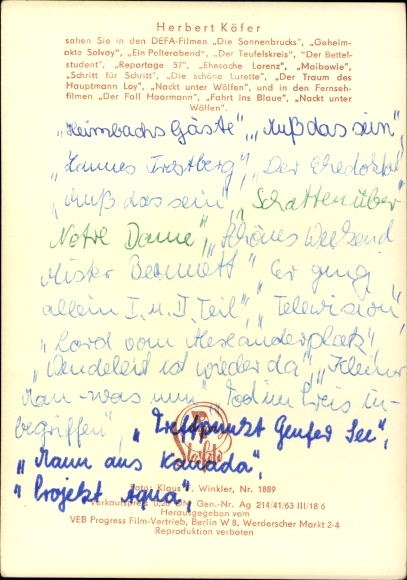 Herbert Köfer
sahen Sie in den DEFA-Filmen „Die Sonnenbrucks", „Geheim-
akte Solvay", „Ein Polterabend", „Der Teufelskreis", „Der Bettel-
student", „Reportage 57", „Ehesache Lorenz", „Maibowle",
„Schritt für Schritt", „Die schöne Lurette", „Der Traum des
Hauptmann Loy", „Nackt unter Wölfen", und in den Fernseh-
filmen „Der Fall Haarmann", „Fahrt ins Blaue", „Nackt unter
Wölfen".
„Heimbachs Gäste", „Muß das sein",
„Hannes Trostberg", „Der Ehedoktor"
„Muß das sein", „Schatten über
Notre Dame", „Schönes Weekend
Mister Bennett" „Er ging
allein I. u. II. Teil", „Television",
„Lord vom Alexanderplatz"
„Wendeleit ist wieder da", „Kleiner
Mann – was nun" „Tod im Preis in-
begriffen", „Treffpunkt Genfer See",
„Mann aus Kanada",
„Projekt Aqua",
Foto: Klaus Winkler, Nr. 1889
Verkaufspreis 0,20 DM Gen.-Nr. Ag 214/41/63 III/18/6
Herausgegeben vom
VEB Progress Film-Vertrieb, Berlin W 8, Werderscher Markt 2-4
Reproduktion verboten